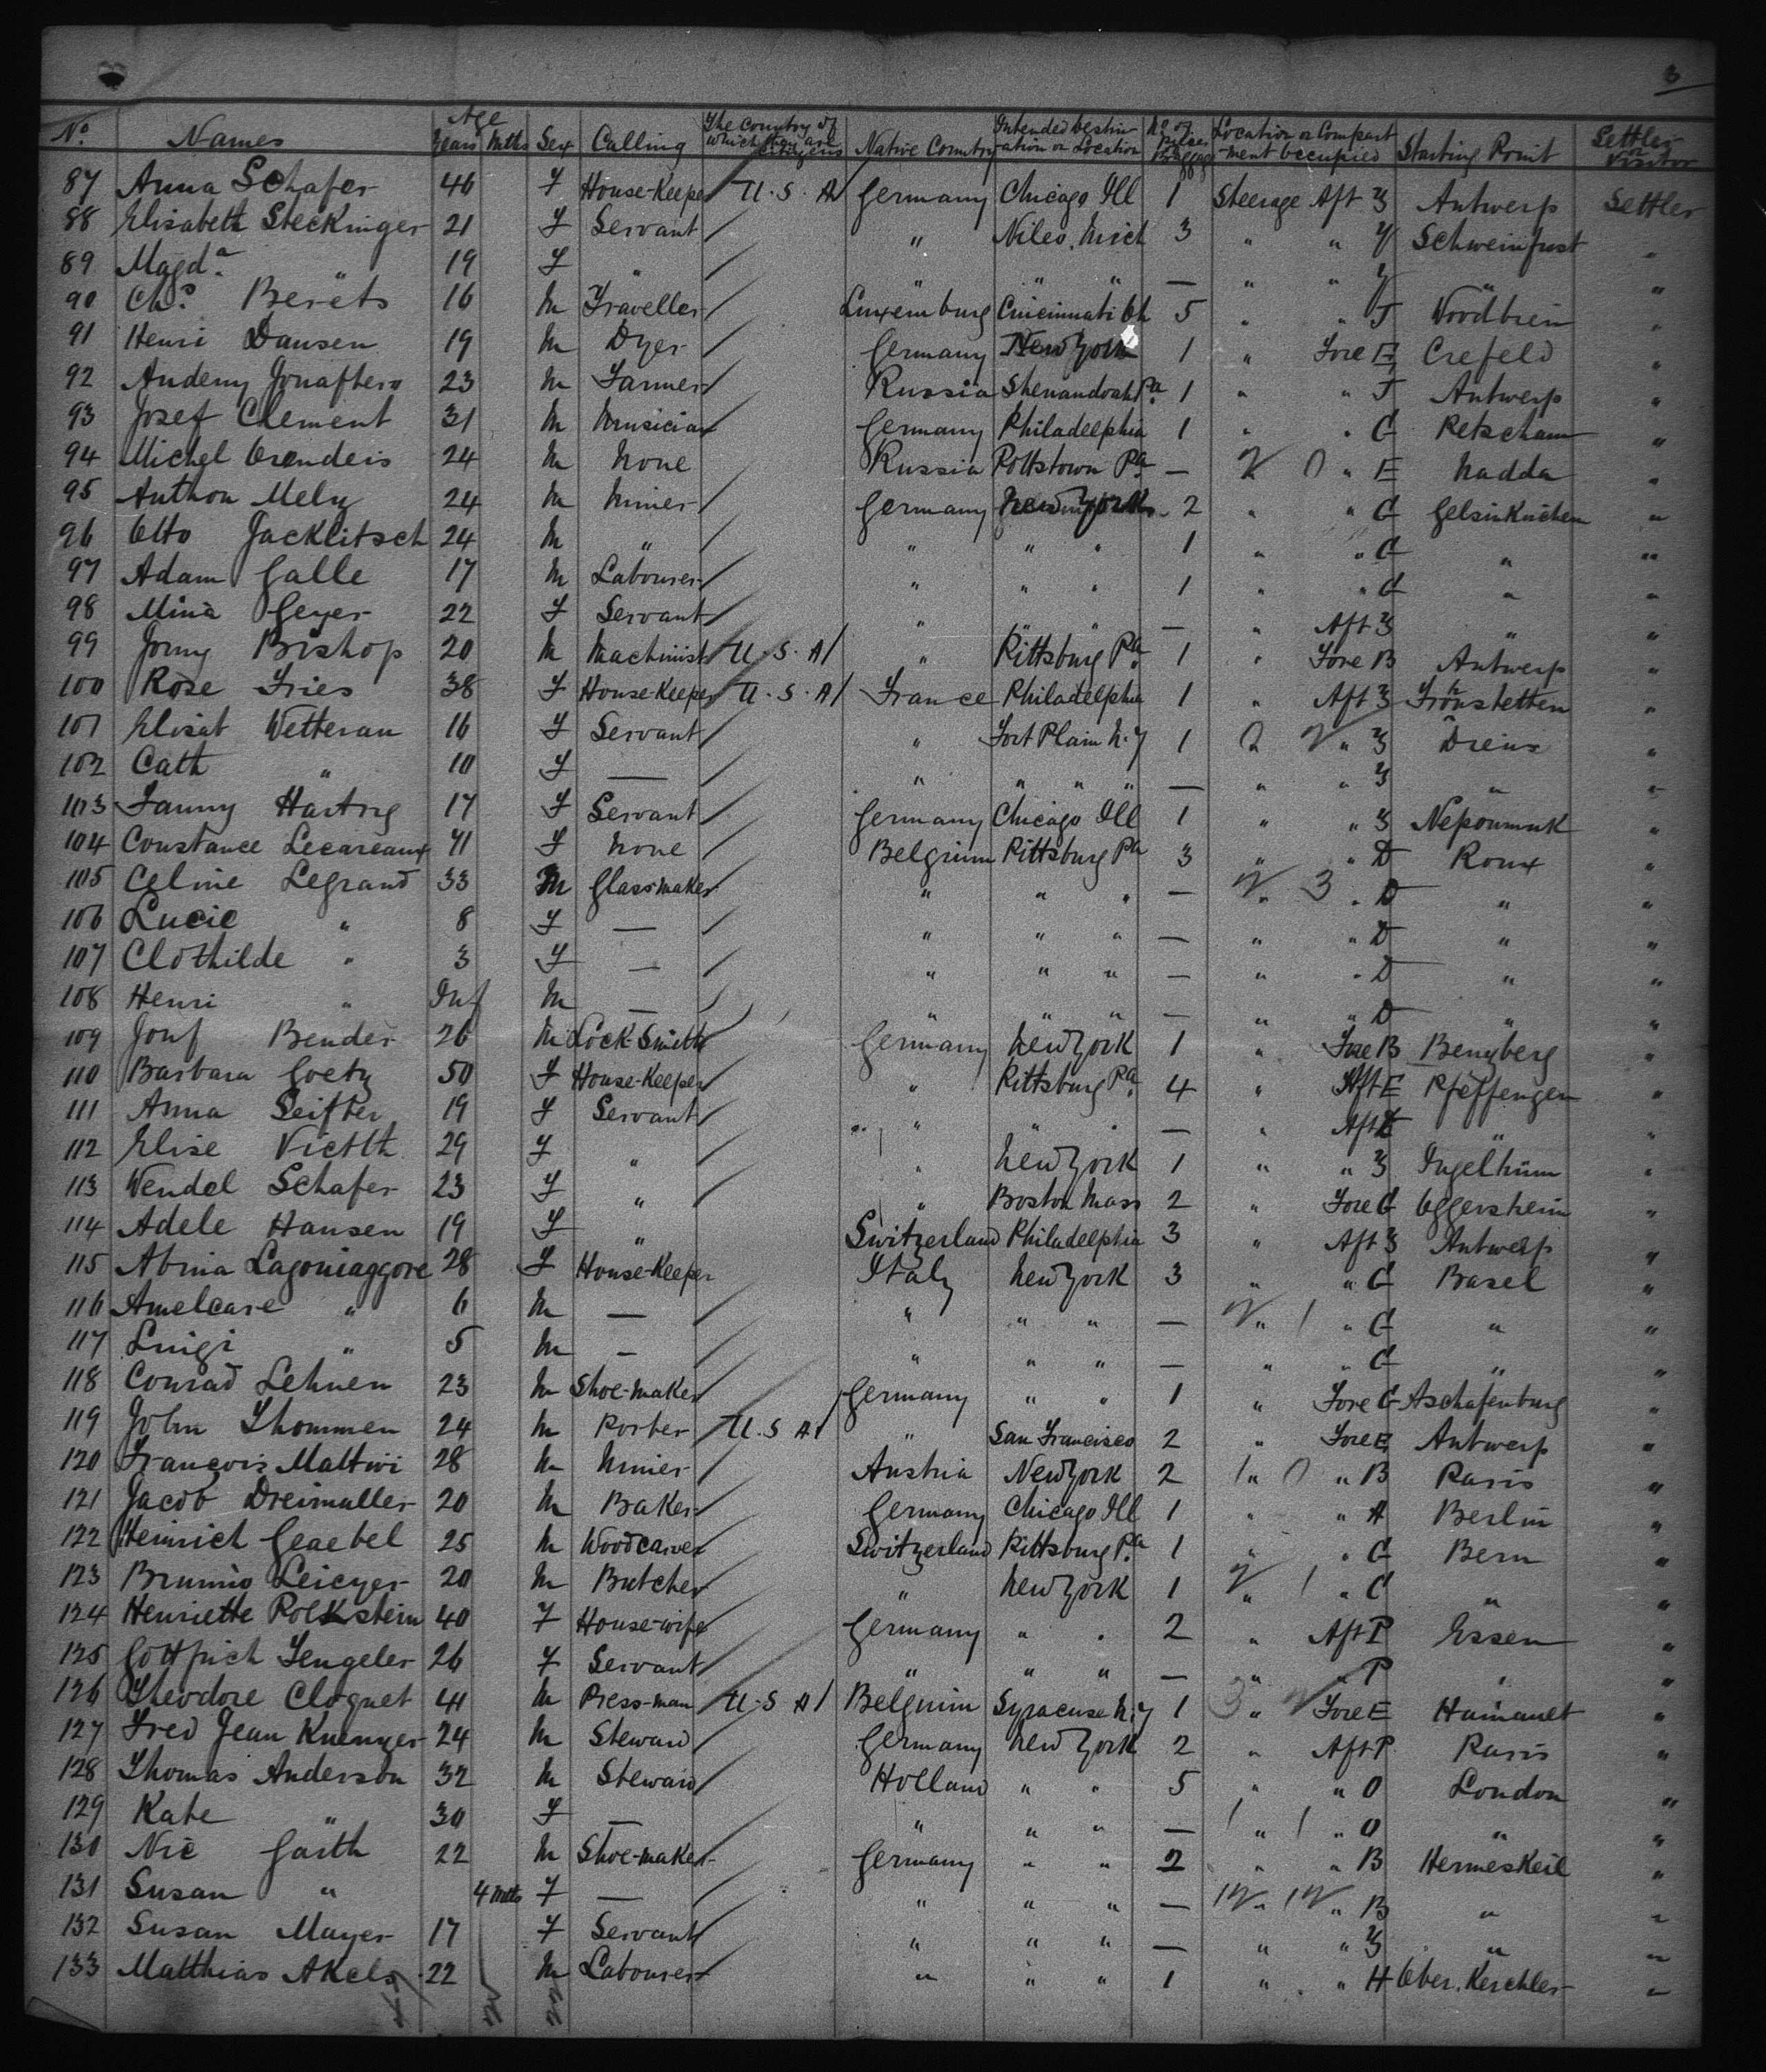 3
No. Names Age Years Mths Sex Calling The Country of which they are Citizens Native Country Intended destination or Location No. of Pieces Baggage Location or Compartment Occupied Starting Point Settler or Visitor
87 Anna Schafer 46 F House-Keeper U.S.A Germany Chicago Ill 1 Steerage Aft Z Antwerp Settler
88 Elisabeth Steckinger 21 F Servant " Niles. Mich 3 " " Y Schweinfurt "
89 Magda. " 19 F " " " " — " " Y " "
90 Chs. Berets 16 M Traveller Luxemburg Cincinnati Oh 5 " " J "
91 Henri Dansen 19 M Dyer Germany New York 1 " Fore E Crefeld "
92 23 M Farmer Russia Shenandoah Pa. 1 " " J Antwerp "
93 Josef Clement 31 M Musician Germany Philadelphia 1 " " G Retscham "
94 Michel 24 M None Russia Pottstown Pa. — " E Nadda "
95 Anthon Mely 24 M Miner Germany New York 2 " " G Gelsinkirchen "
96 Otto Jacklitsch 24 M " " " " 1 " " G " "
97 Adam Galle 17 M Labourer " " " 1 " " G " "
98 Mina Geyer 22 F Servant " " " — " Aft Z " "
99 Jonny Bishop 20 M Machinist U.S.A " Pittsburg Pa. 1 " Fore B Antwerp "
100 Rose Fries 38 F House-Keeper U.S.A France Philadelphia 1 " Aft Z Frönstetten "
101 Elisat Wetterau 16 F Servant " Fort Plain N.Y 1 " Z Dreux "
102 Cath " 10 F — " " " " — " " Z " "
103 Fanny Hartrig 17 F Servant Germany Chicago Ill 1 " " Z Nepoumuk "
104 Constance Lecareaux 41 F None Belgium Pittsburg Pa 3 " " D Roux "
105 Celine Legrand 33 M Glassmaker " " " — " " D " "
106 Lucie " 8 F — " " " — " " D " "
107 Clothilde " 3 F — " " " — " " D " "
108 Henri " Inf M — " " " — " " D " "
109 Bender 26 M Lock-Smith Germany New York 1 " Fore B Bengberg "
110 Barbara Goetz 50 F House-Keeper " Pittsburg Pa. 4 " Aft E Pfeffengen "
111 Anna Seifter 19 F Servant " " " — " Aft E " "
112 Elise Vietth 29 F " " New York 1 " " Z Ingelhiim "
113 Wendel Schafer 23 F " " Boston Mass 2 " Fore G Oggersheim "
114 Adele Hansen 19 F " Switzerland Philadelphia 3 " Aft Z Antwerp "
115 Abina Lagomaggore 28 F House-Keeper Italy New York 3 " " G Basel "
116 Amelcare " 6 M — " " " — " " G " "
117 Luigi " 5 M — " " " — " " G " "
118 Conrad Lehnen 23 M Shoe-maker Germany " " 1 " Fore G Aschafenburg "
119 John Thommen 24 M Porter U.S.A " San Francisco 2 " Fore E Antwerp "
120 François Mattivi 28 M Miner Austria New York 2 " " B Paris "
121 Jacob Dreimuller 20 M Baker Germany Chicago Ill 1 " " A Berlin "
122 Heinrich Geaebel 25 M Woodcarver Switzerland Pittsburg Pa. 1 " " G Bern "
123 Leicyer 20 M Butcher " New York 1 " " C " "
124 Henriette Polkstein 40 F House-wife Germany " " 2 " Aft P Essen "
125 Gottfrich Tengeler 26 F Servant " " " — " " P " "
126 Theodore Cloquet 41 M Press-man U.S A Belguim Syracuse N.Y 1 " Fore E Hainault "
127 Fred Jean 24 M Steward Germany New York 2 " Aft P Paris "
128 Thomas Anderson 32 M Steward Holland " " 5 " " O London "
129 Kate " 30 F — " " " — " " O " "
130 Nic Garth 22 M Shoe-maker Germany " " 2 " " B Hermeskeil "
131 Susan " 4 Mths F — " " " — " " B " "
132 Susan Mayer 17 F Servant " " " — " " Z " "
133 Matthias Akels 22 M Labourer " " " 1 " " H Ober. Kerchler "